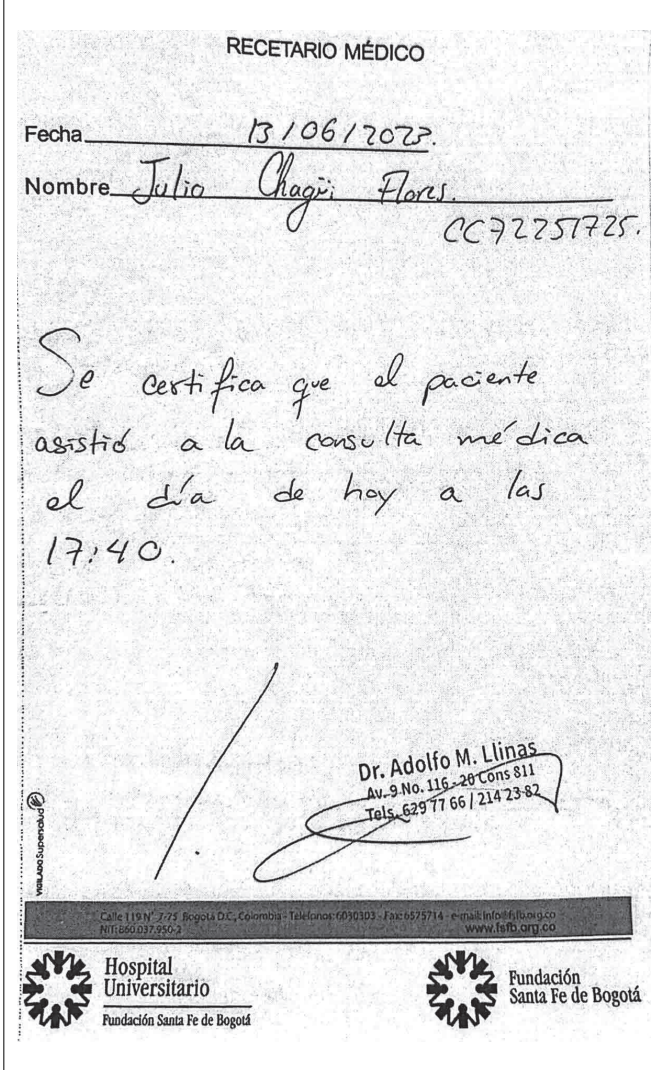 RECETARIO MÉDICO
Fecha 13/06/2023.
Nombre Julio Chagüi Flores.
CC72251725.
Se certifica que el paciente
asistió a la consulta médica
el día de hoy a las
17:40.
Dr. Adolfo M. Llinas
Av. 9 No. 116 - 20 Cons 811
Tels. 629 77 66 / 214 23 82
VIGILADO Supersalud
Calle 119 N° 7-75 Bogotá D.C., Colombia - Teléfonos: 6030303 - Fax: 6575714 - e-mail: info@fsfb.org.co
NIT: 860.037.950-2 www.fsfb.org.co
Hospital
Universitario
Fundación Santa Fe de Bogotá
Fundación
Santa Fe de Bogotá